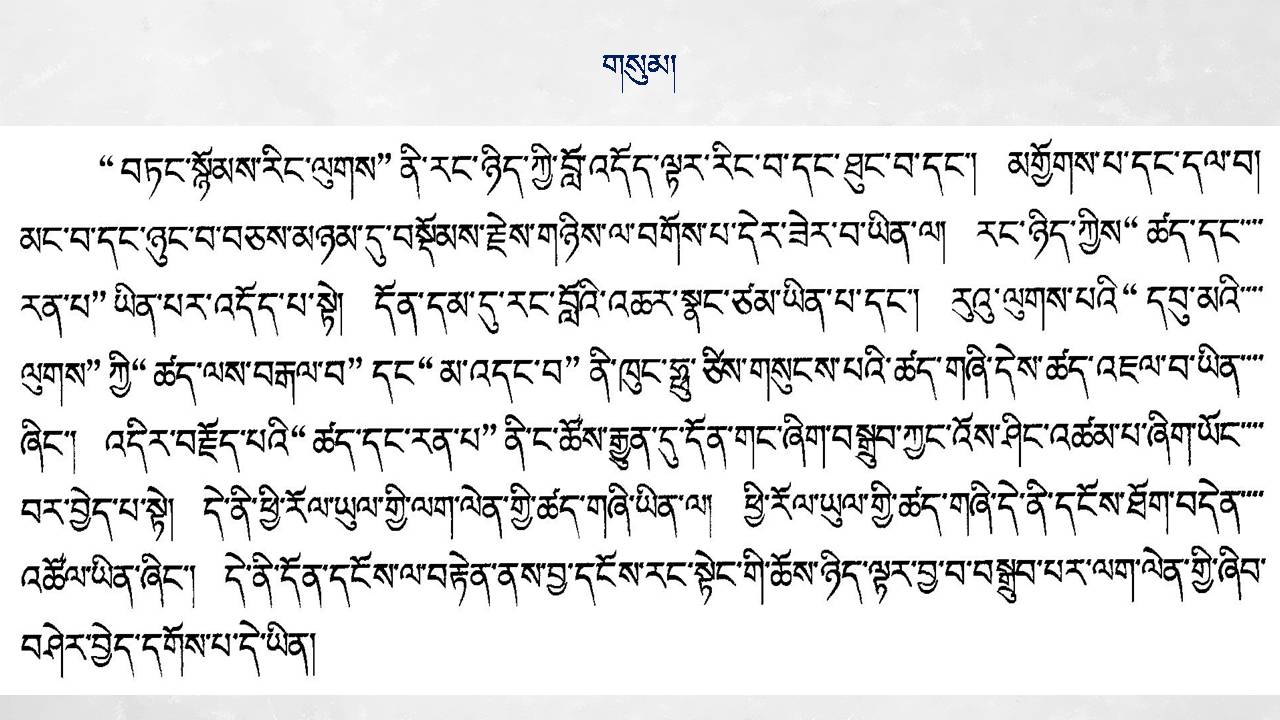 གསུམ།
“ བཏང་སྙོམས་རིང་ལུགས” ནི་རང་ཉིད་ཀྱི་བློ་འདོད་ལྟར་རིང་བ་དང་ཐུང་བ་དང་། མགྱོགས་པ་དང་དལ་བ།
མང་བ་དང་ཉུང་བ་བཅས་མཉམ་དུ་བསྡོམས་རྗེས་གཉིས་ལ་བགོས་པ་དེར་ཟེར་བ་ཡིན་ལ། རང་ཉིད་ཀྱིས“ ཚད་དང་་་་
རན་པ” ཡིན་པར་འདོད་པ་སྟེ། དོན་དམ་དུ་རང་བློའི་འཆར་སྣང་ཙམ་ཡིན་པ་དང་། རུའུ་ལུགས་པའི“ དབུ་མའི་་་་
ལུགས” ཀྱི“ ཚད་ལས་བརྒལ་བ” དང“ མ་འདང་བ” ནི་ཁུང་ཧྥུ་ཙིས་གསུངས་པའི་ཚད་གཞི་དེས་ཚད་འཇལ་བ་ཡིན་་་་
ཞིང་། འདིར་བརྗོད་པའི“ ཚད་དང་རན་པ” ནི་ང་ཚོས་རྒྱུན་དུ་དོན་གང་ཞིག་བསྒྲུབ་ཀྱང་འོས་ཤིང་འཚམ་པ་ཞིག་ཡོང་་་་
བར་བྱེད་པ་སྟེ། དེ་ནི་ཕྱི་རོལ་ཡུལ་གྱི་ལག་ལེན་གྱི་ཚད་གཞི་ཡིན་ལ། ཕྱི་རོལ་ཡུལ་གྱི་ཚད་གཞི་དེ་ནི་དངོས་ཐོག་བདེན་་་་
འཚོལ་ཡིན་ཞིང་། དེ་ནི་དོན་དངོས་ལ་བརྟེན་ནས་བྱ་དངོས་རང་སྟེང་གི་ཆོས་ཉིད་ལྟར་བྱ་བ་བསྒྲུབ་པར་ལག་ལེན་གྱི་ཞིབ་
བཤེར་བྱེད་དགོས་པ་དེ་ཡིན།